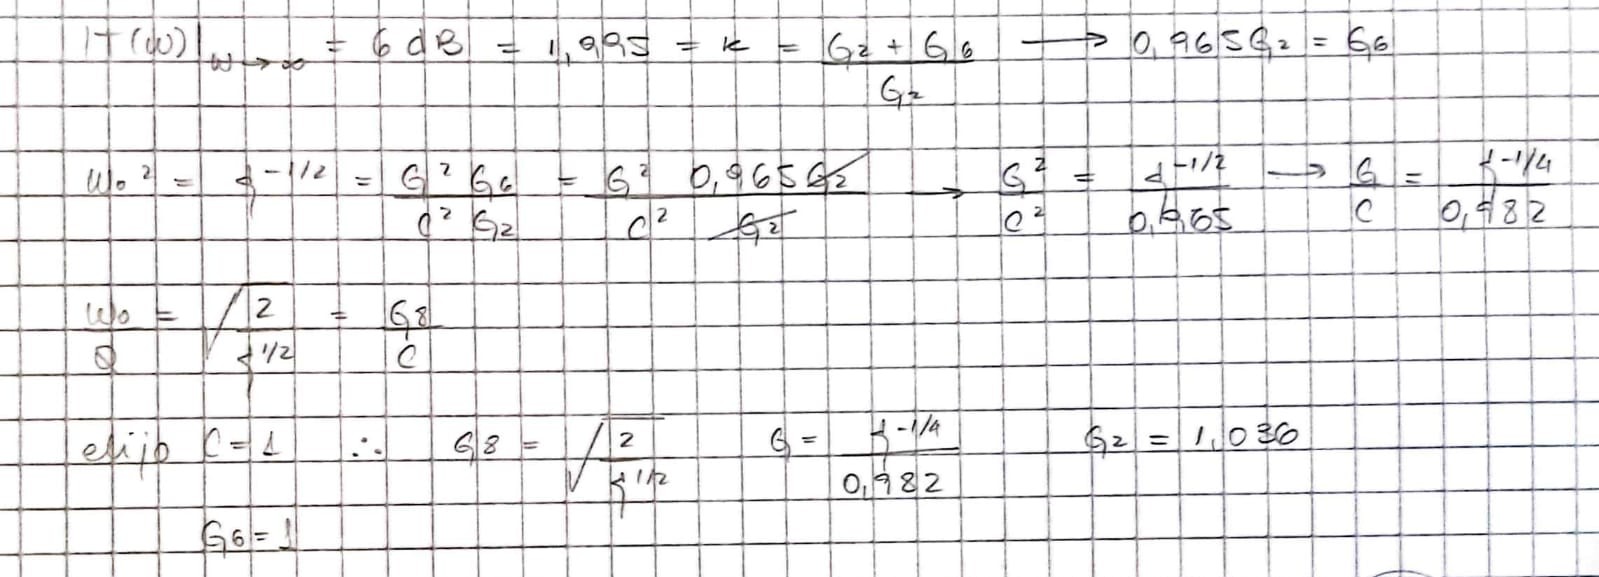 |T(ω)|ω→∞ = 6 dB = 1,995 = k = (G2 + G6)/G2 ⟶ 0,965G2 = G6
ω0² = ξ^-1/2 = (G² G6)/(C² G2) = (G² 0,965G2)/(C² G2) → G²/C² = ξ^-1/2/0,965 → G/C = ξ^-1/4/0,982
ω0/Q = √(2/ξ^1/2) = G8/C
elijo C=1 ∴ G8 = √(2/ξ^1/2) G = ξ^-1/4/0,982 G2 = 1,036
G6=1